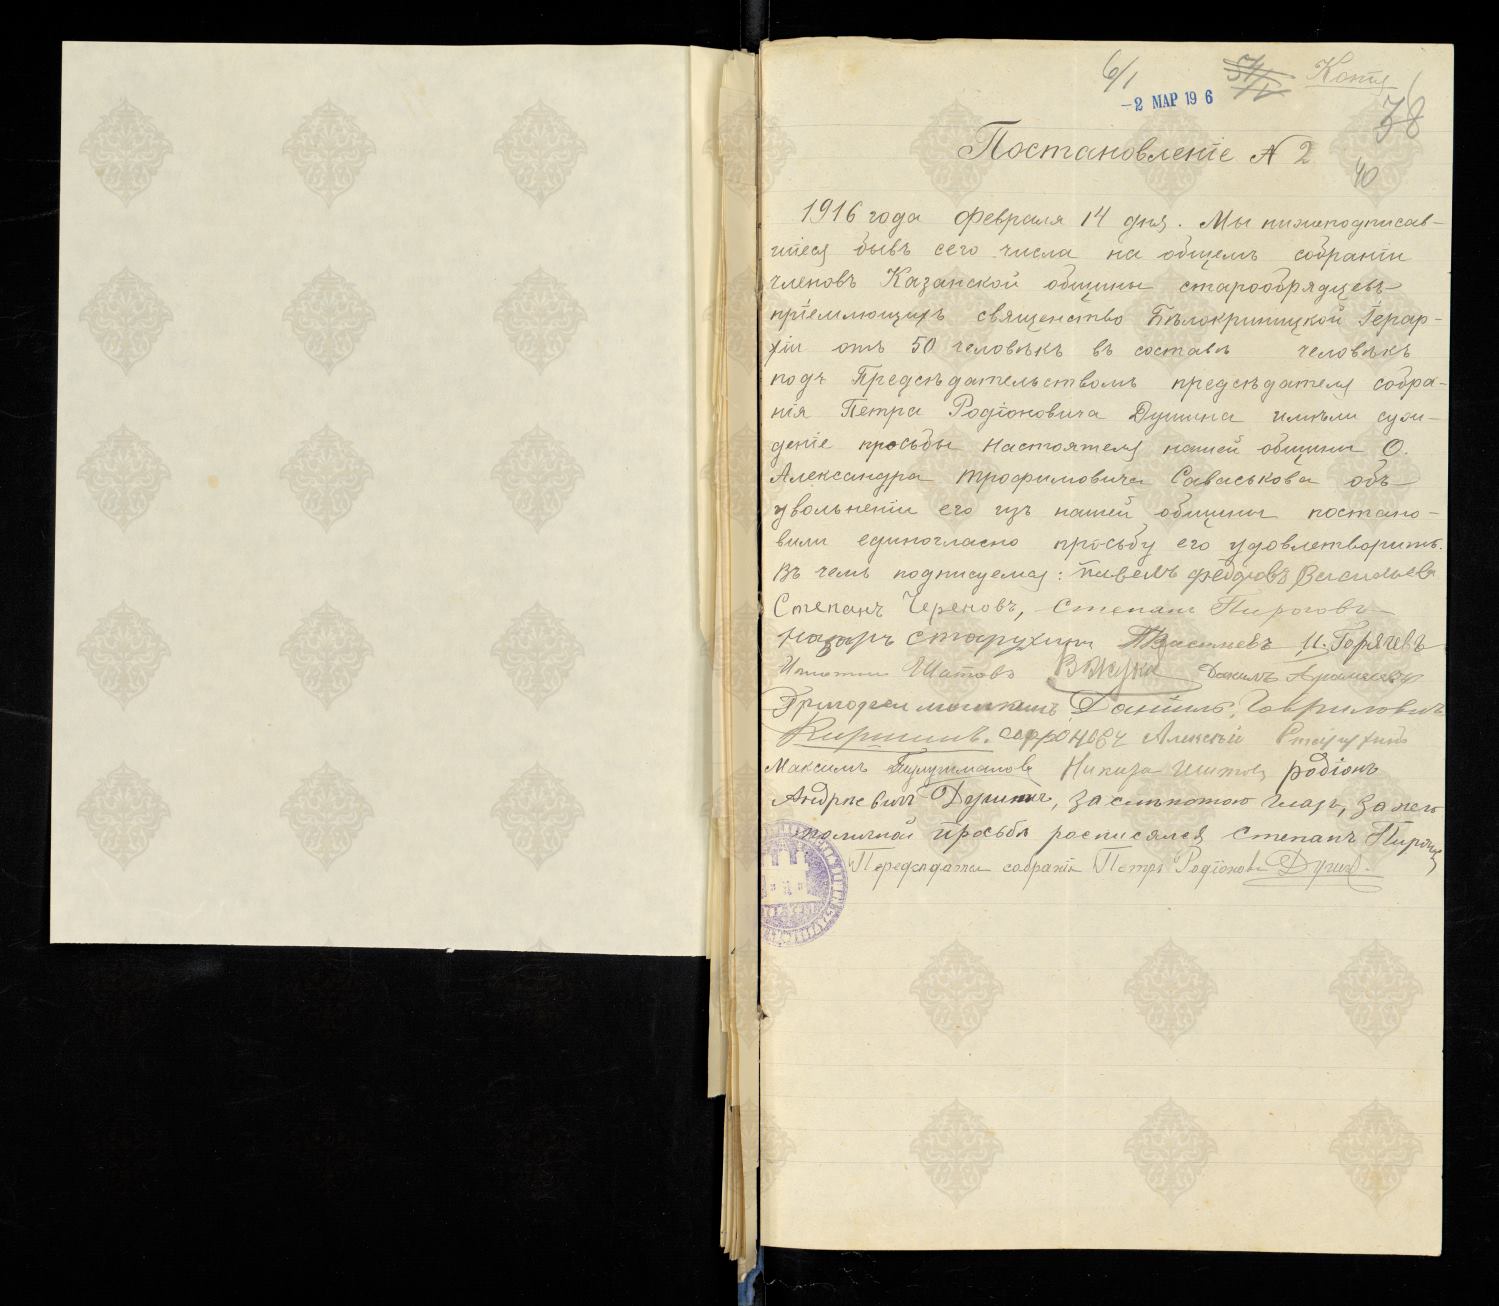 6/1 54/1 Копія
-2 МАР 19 6
38
Постановленіе № 2
40
1916 года февраля 14 дня. Мы нижеподписав-
шіеся бывъ сего числа на общемъ собраніи
членовъ Казанской общины старообрядцевъ
пріемлющихъ священство Бѣлокриницкой Іерар-
хіи отъ 50 человѣкъ въ составѣ человѣкъ
подъ Предсѣдательствомъ предсѣдателя собра-
нія Петра Родіоновича Душина имѣли суж-
деніе просьбы настоятеля нашей общины О.
Александра Трофимовича Саваськова объ
увольненіи его изъ нашей общины постано-
вили единогласно просьбу его удовлетворить.
Въ чемъ подписуемся: Павелъ Федоровъ Васильевъ
Степанъ Череновъ, Степанъ Пироговъ
Назаръ Старухинъ И. Горячевъ
Шатовъ В Жука Данилъ
Григорей Даніилъ Гавриловичъ
Киршинъ. Алексѣй Старухинъ
Максимъ Никита Шитовъ Родіонъ
Андрѣевичъ Душинъ, за слѣпотою глазъ, за него
по личной просьбѣ росписался Степанъ Пироговъ
Передсѣдатель собранія Петръ Родіоновъ Душинъ.